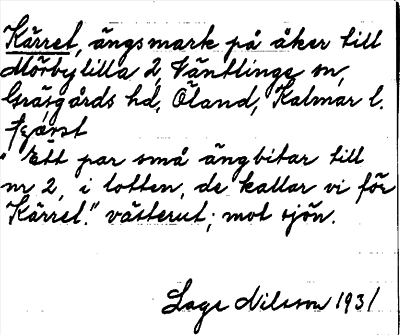 Kärret, ängsmark på åker till
Mörbylilla 2, Ventlinge sn,
Gräsgårds hd, Öland, Kalmar l.
"Ett par små ängbitar till
nr 2, i lotten, de kallar vi för
Kärret." västerut; mot sjön.
Lage Nilsson 1931